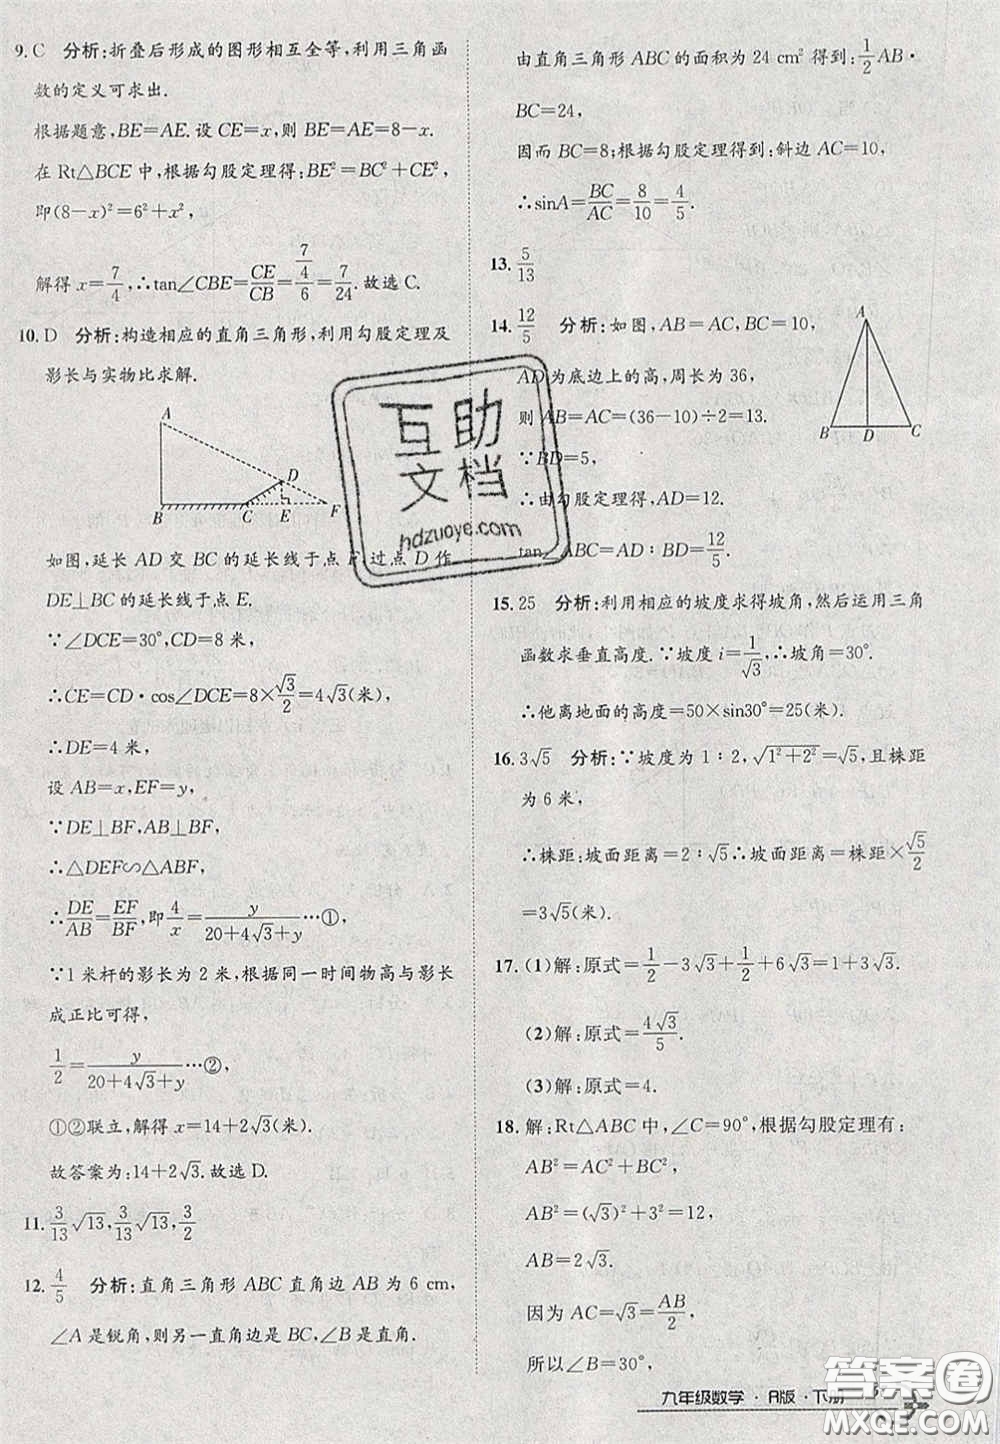 9. C 分析:折叠后形成的图形相互全等,利用三角函
数的定义可求出.
根据题意,BE=AE.设CE=x,则BE=AE=8-x.
在Rt△BCE中,根据勾股定理得:BE²=BC²+CE²,
即(8-x)²=6²+x²,
解得x=7/4,∴tan∠CBE=CE/CB=(7/4)/6=7/24.故选C.
10. D 分析:构造相应的直角三角形,利用勾股定理及
影长与实物比求解.
A
D
B C E F
如图,延长AD交BC的延长线于点F,过点D作
DE⊥BC的延长线于点E.
∵∠DCE=30°,CD=8米,
∴CE=CD·cos∠DCE=8×√3/2=4√3(米),
∴DE=4米,
设AB=x,EF=y,
∵DE⊥BF,AB⊥BF,
∴△DEF∽△ABF,
∴DE/AB=EF/BF,即4/x=y/(20+4√3+y)…①,
∵1米杆的影长为2米,根据同一时间物高与影长
成正比可得,
1/2=y/(20+4√3+y)…②,
①②联立,解得x=14+2√3(米).
故答案为:14+2√3.故选D.
11. 3/13√13,3/13√13,3/2
12. 4/5 分析:直角三角形ABC直角边AB为6 cm,
∠A是锐角,则另一直角边是BC,∠B是直角.
由直角三角形ABC的面积为24 cm²得到:1/2AB·
BC=24,
因而BC=8;根据勾股定理得到:斜边AC=10,
∴sinA=BC/AC=8/10=4/5.
13. 5/13
14. 12/5 分析:如图,AB=AC,BC=10,
AD为底边上的高,周长为36,
则AB=AC=(36-10)÷2=13.
∵BD=5,
∴由勾股定理得,AD=12.
tan∠ABC=AD:BD=12/5.
A
B D C
15. 25 分析:利用相应的坡度求得坡角,然后运用三角
函数求垂直高度.∵坡度i=1/√3,∴坡角=30°.
∴他离地面的高度=50×sin30°=25(米).
16. 3√5 分析:∵坡度为1:2,√(1²+2²)=√5,且株距
为6米,
∴株距:坡面距离=2:√5∴坡面距离=株距×√5/2
=3√5(米).
17. (1)解:原式=1/2-3√3+1/2+6√3=1+3√3.
(2)解:原式=4√3/5.
(3)解:原式=4.
18. 解:Rt△ABC中,∠C=90°,根据勾股定理有:
AB²=AC²+BC²,
AB²=(√3)²+3²=12,
AB=2√3.
因为AC=√3=AB/2,
所以∠B=30°,
九年级数学·R版·下册
互助
文档
hdzuoye.com
答案圈
MXQE.COM